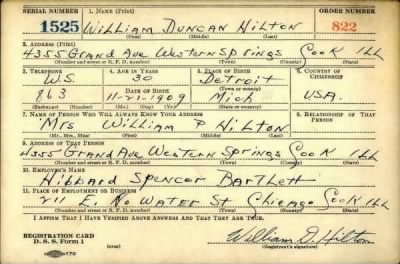 SERIAL NUMBER 1. NAME (Print) ORDER NUMBER
1525 William Duncan Hilton 822
(First) (Middle) (Last)
2. ADDRESS (Print)
4355 Grand Ave Western Springs Cook Ill
(Number and street or R. F. D. number) (Town) (County) (State)
3. TELEPHONE 4. AGE IN YEARS 5. PLACE OF BIRTH 6. COUNTRY OF CITIZENSHIP
W.S. 30 Detroit
DATE OF BIRTH (Town or county)
863 11-21-1909 Mich U.S.A.
(Exchange) (Number) (Mo.) (Day) (Yr.) (State or country)
7. NAME OF PERSON WHO WILL ALWAYS KNOW YOUR ADDRESS 8. RELATIONSHIP OF THAT PERSON
Mrs William P Hilton
(Mr., Mrs., Miss) (First) (Middle) (Last)
9. ADDRESS OF THAT PERSON
4355 Grand Ave Western Springs Cook Ill
(Number and street or R. F. D. number) (Town) (County) (State)
10. EMPLOYER'S NAME
Hibbard Spencer Bartlett
11. PLACE OF EMPLOYMENT OR BUSINESS
211 E. No Water St Chicago Cook Ill
(Number and street or R. F. D. number) (Town) (County) (State)
I AFFIRM THAT I HAVE VERIFIED ABOVE ANSWERS AND THAT THEY ARE TRUE.
REGISTRATION CARD
D. S. S. Form 1
William D. Hilton
(Registrant's signature)